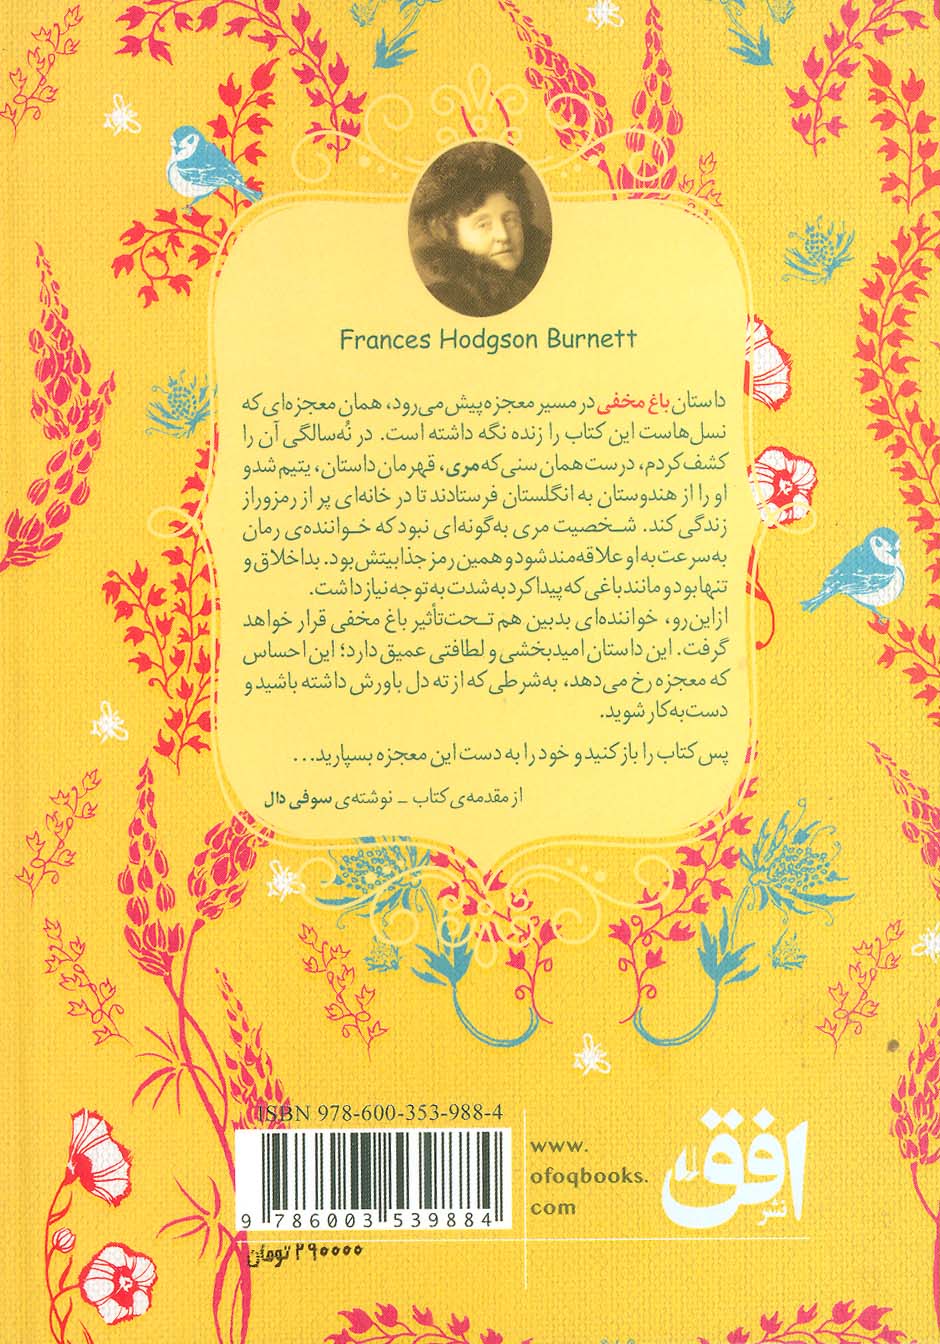 Frances Hodgson Burnett
داستان باغ مخفی در مسیر معجزه پیش می‌رود، همان معجزه‌ای که
نسل‌هاست این کتاب را زنده نگه داشته است. در نُه‌سالگی آن را
کشف کردم، درست همان سنی که مری، قهرمان داستان، یتیم شد و
او را از هندوستان به انگلستان فرستادند تا در خانه‌ای پر از رمزوراز
زندگی کند. شخصیت مری به‌گونه‌ای نبود که خواننده‌ی رمان
به‌سرعت به او علاقه‌مند شود و همین رمز جذابیتش بود. بداخلاق و
تنها بود و مانند باغی که پیدا کرد به شدت به توجه نیاز داشت.
ازاین‌رو، خواننده‌ای بدبین هم تحت‌تأثیر باغ مخفی قرار خواهد
گرفت. این داستان امیدبخشی و لطافتی عمیق دارد؛ این احساس
که معجزه رخ می‌دهد، به‌شرطی که از ته دل باورش داشته باشید و
دست‌به‌کار شوید.
پس کتاب را باز کنید و خود را به دست این معجزه بسپارید...
از مقدمه‌ی کتاب ـ نوشته‌ی سوفی دال
ISBN 978-600-353-988-4
9 786003 539884
۲۹۰۰۰۰ تومان
www.
ofoqbooks.
com
نشر افق